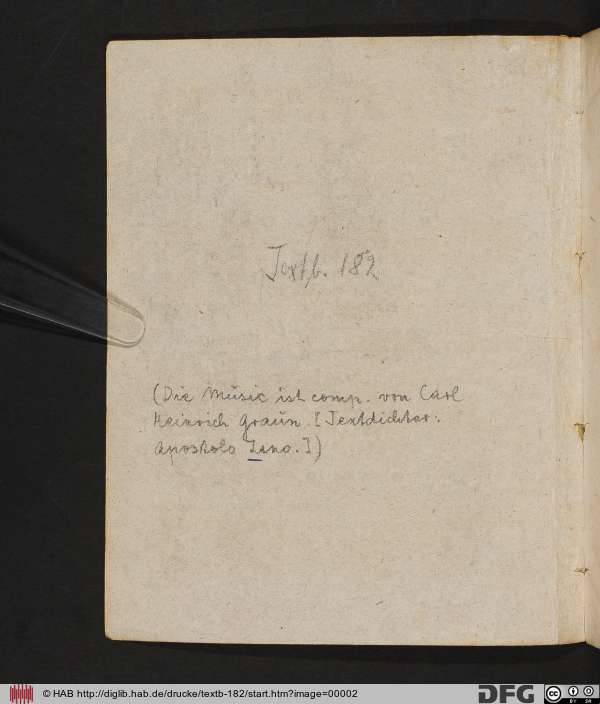 Textb. 182
(Die Music ist comp. von Carl
Heinrich Graun. [Textdichter:
Apostolo Zeno.])
© HAB http://diglib.hab.de/drucke/textb-182/start.htm?image=00002
DFG
cc BY SA